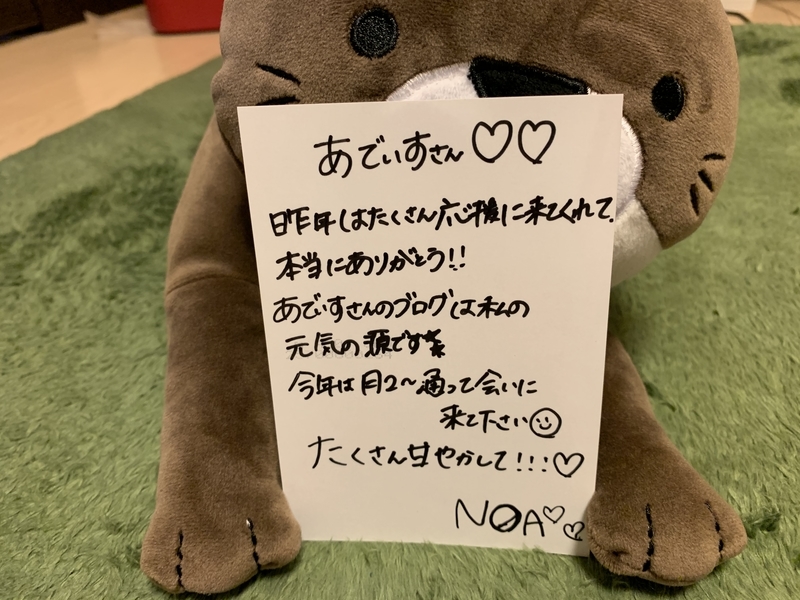 あでぃすさん♡♡
昨年はたくさん応援に来てくれて、
本当にありがとう!!
あでぃすさんのブログは私の
元気の源です
今年は月2〜通って会いに
来て下さい☺
たくさん甘やかして!!!♡
NOA♡♡